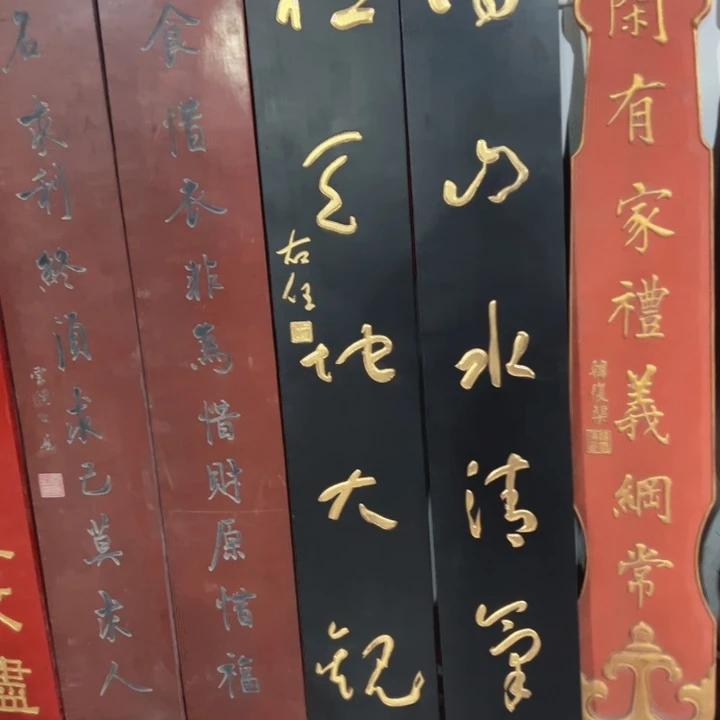 閑有家禮義綱常
韓復榘
山水清氣
天地大觀
右任
食惜衣非為惜財原惜福
名求利終須求己莫求人